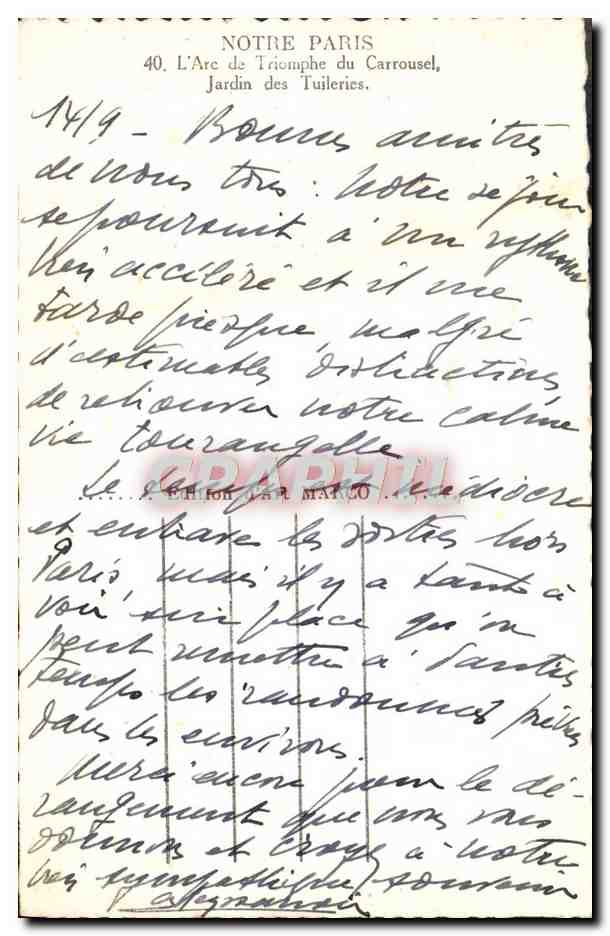 NOTRE PARIS
40. L'Arc de Triomphe du Carrousel,
Jardin des Tuileries.
14/9 - Bonnes amitiés
de nous tous : Notre séjour
se poursuit à un rythme
bien accéléré et il me
tarde presque, malgré
d'estimables distractions
de retrouver notre calme
vie tourangelle
Le temps est médiocre
Edition d'Art MARCO
et entrave les sorties hors
Paris, mais il y a tant à
voir sur place qu'on
peut remettre à d'autres
temps les randonnées
dans les environs.
Merci encore pour le dé-
rangement que nous vous
donnons et croyez à notre
bien sympathique souvenir